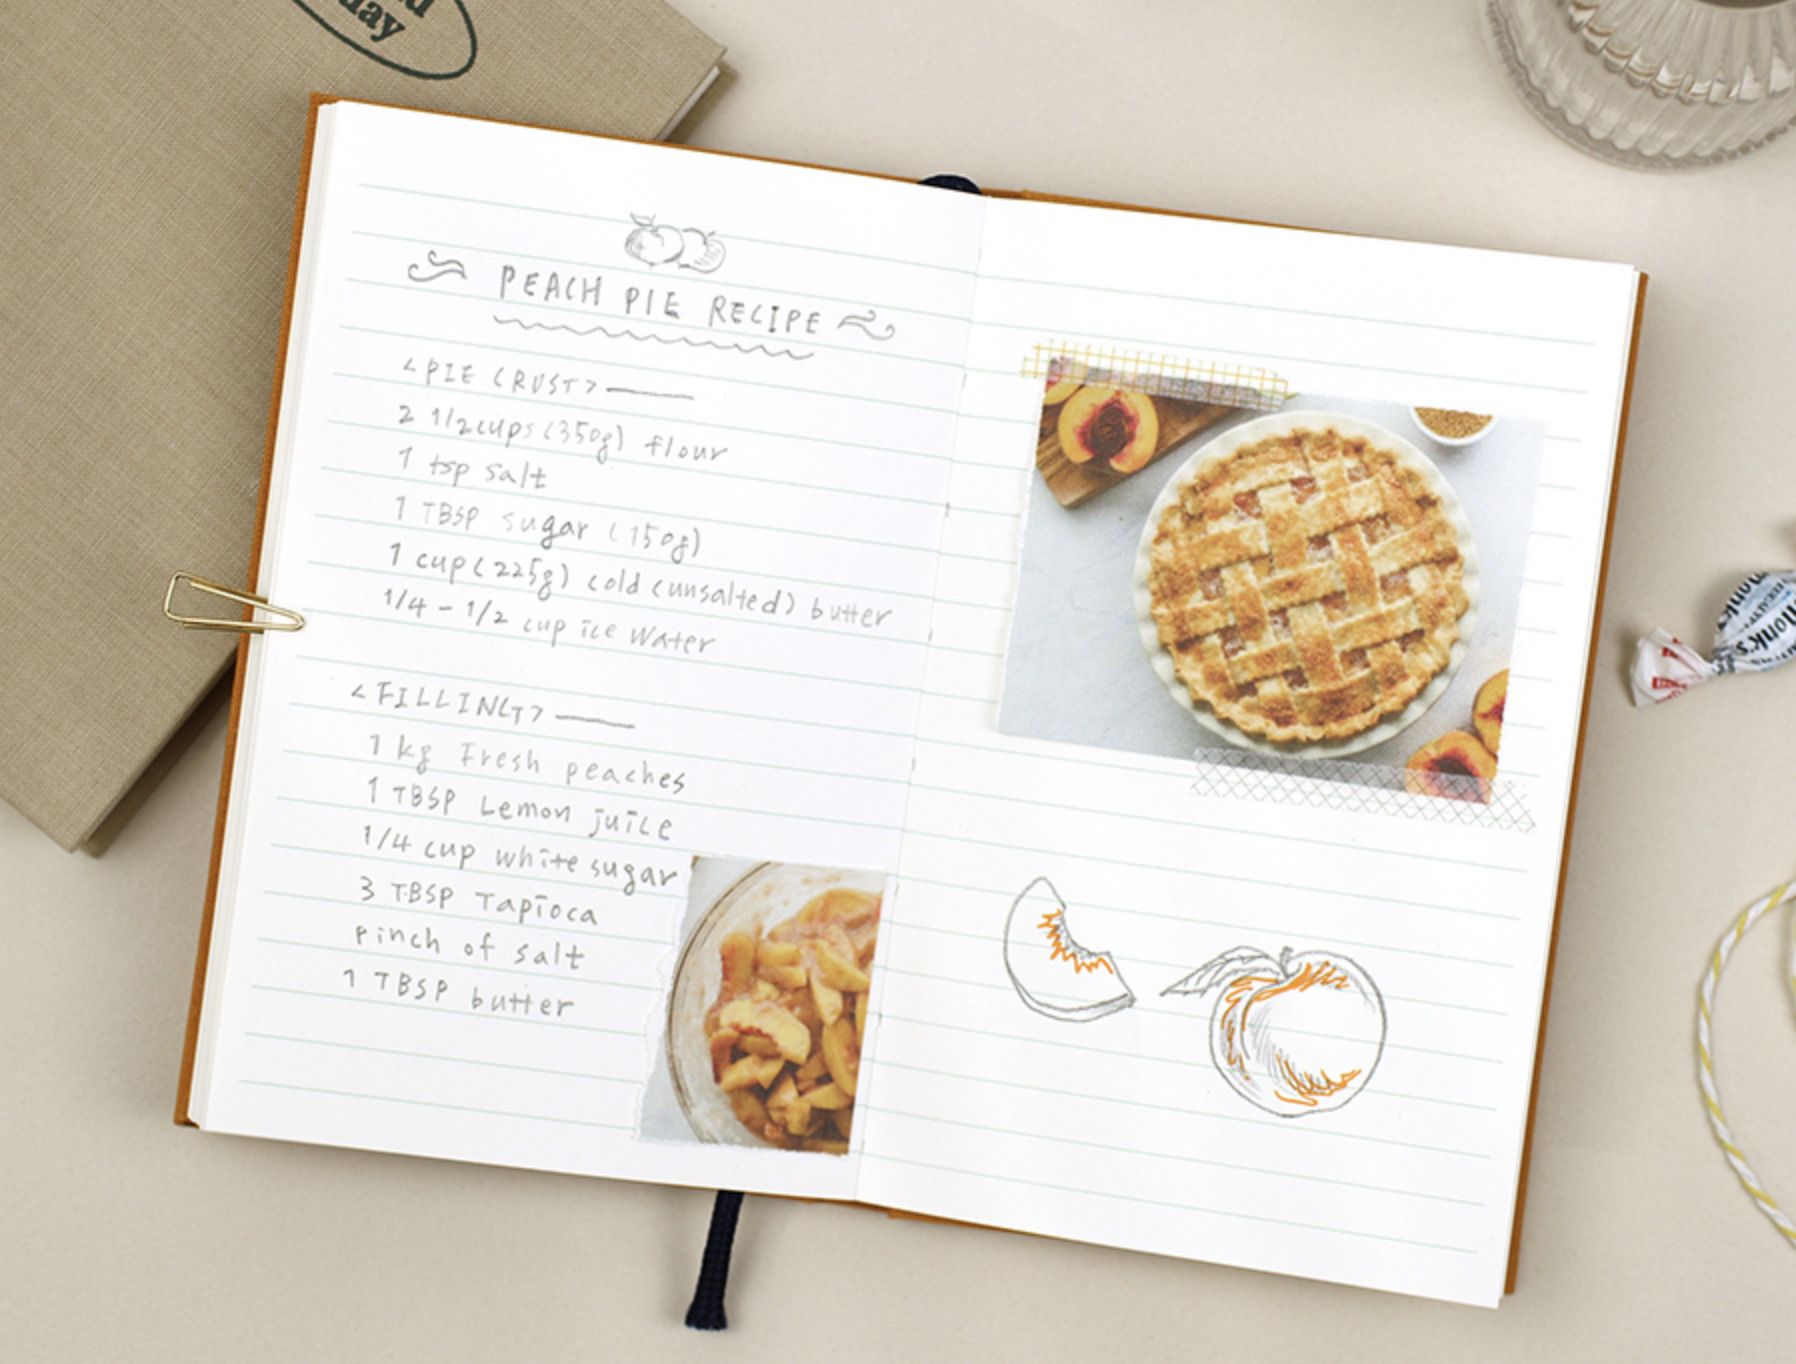 day
PEACH PIE RECIPE
<PIE CRUST>
2 1/2cups(350g) flour
1 tsp salt
1 TBSP sugar (150g)
1 cup(225g) cold (unsalted) butter
1/4 - 1/2 cup ice water
<FILLING>
1 kg Fresh peaches
1 TBSP Lemon juice
1/4 cup white sugar
3 TBSP Tapioca
pinch of salt
1 TBSP butter